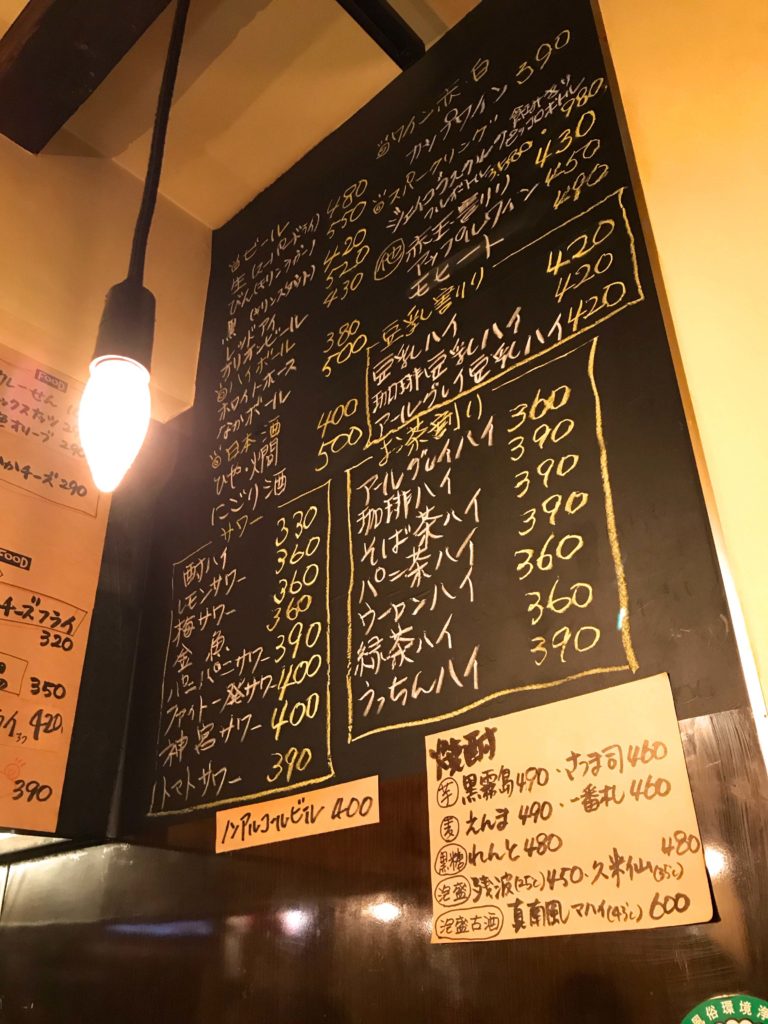 ワイン赤・白
カップワイン 390
スパークリング
ジェイコブスクリーク
フルボトル
980
赤玉割り 430
アップルワイン 450
モヒート 480
ビール
生(スーパードライ) 480
びん(キリンラガー) 550
黒(キリンスタウト) 420
レッドアイ 520
オリオンビール 430
ハイボール
ホワイトホース 380
なかボール 500
日本酒
ひや・燗 400
にごり酒 500
豆乳割り
豆乳ハイ 420
珈琲豆乳ハイ 420
アールグレイ豆乳ハイ 420
お茶割り
アールグレイハイ 360
珈琲ハイ 390
そば茶ハイ 390
バニ茶ハイ 390
ウーロンハイ 360
緑茶ハイ 360
うっちんハイ 390
サワー
酎ハイ 330
レモンサワー 360
梅サワー 360
金魚 360
ハニーバニサワー 390
ファイト一発サワー 400
神宮サワー 400
トマトサワー 390
ノンアルコールビール 400
焼酎
芋 黒霧島 490・さつま司 460
麦 えんま 490・一番札 460
黒糖 れんと 480
泡盛 残波(25℃) 450・久米仙(35℃) 480
泡盛古酒 真南風マハイ(43℃) 600
FOOD
カレーせん
ミックスナッツ
オリーブ 290
いかチーズ 290
FOOD
チーズフライ
320
350
420
390
風俗環境浄